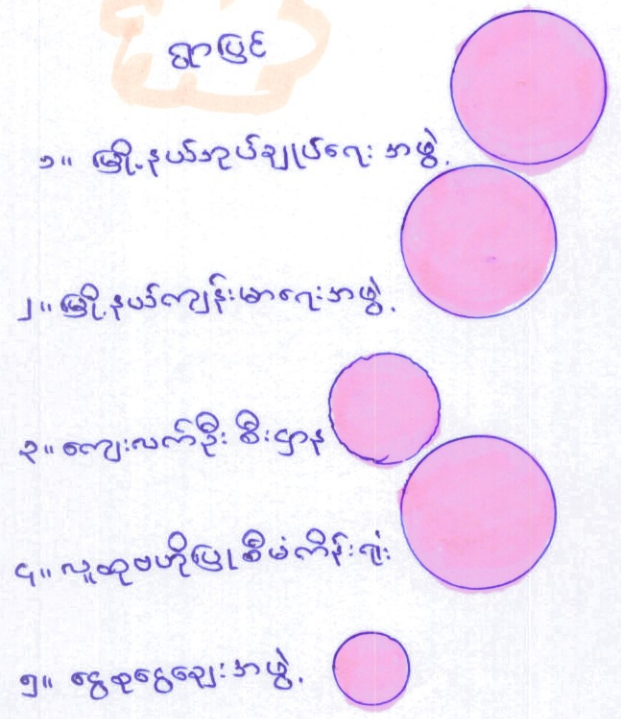 ရွာပြင်
၁။ မြို့နယ်အုပ်ချုပ်ရေး အဖွဲ့
၂။ မြို့နယ်ကျန်းမာရေးအဖွဲ့
၃။ ကျေးလက်ဦး စီးဌာန
၄။ လူထုဗဟိုပြုစီမံကိန်းရုံး
၅။ ငွေစုငွေချေးအဖွဲ့